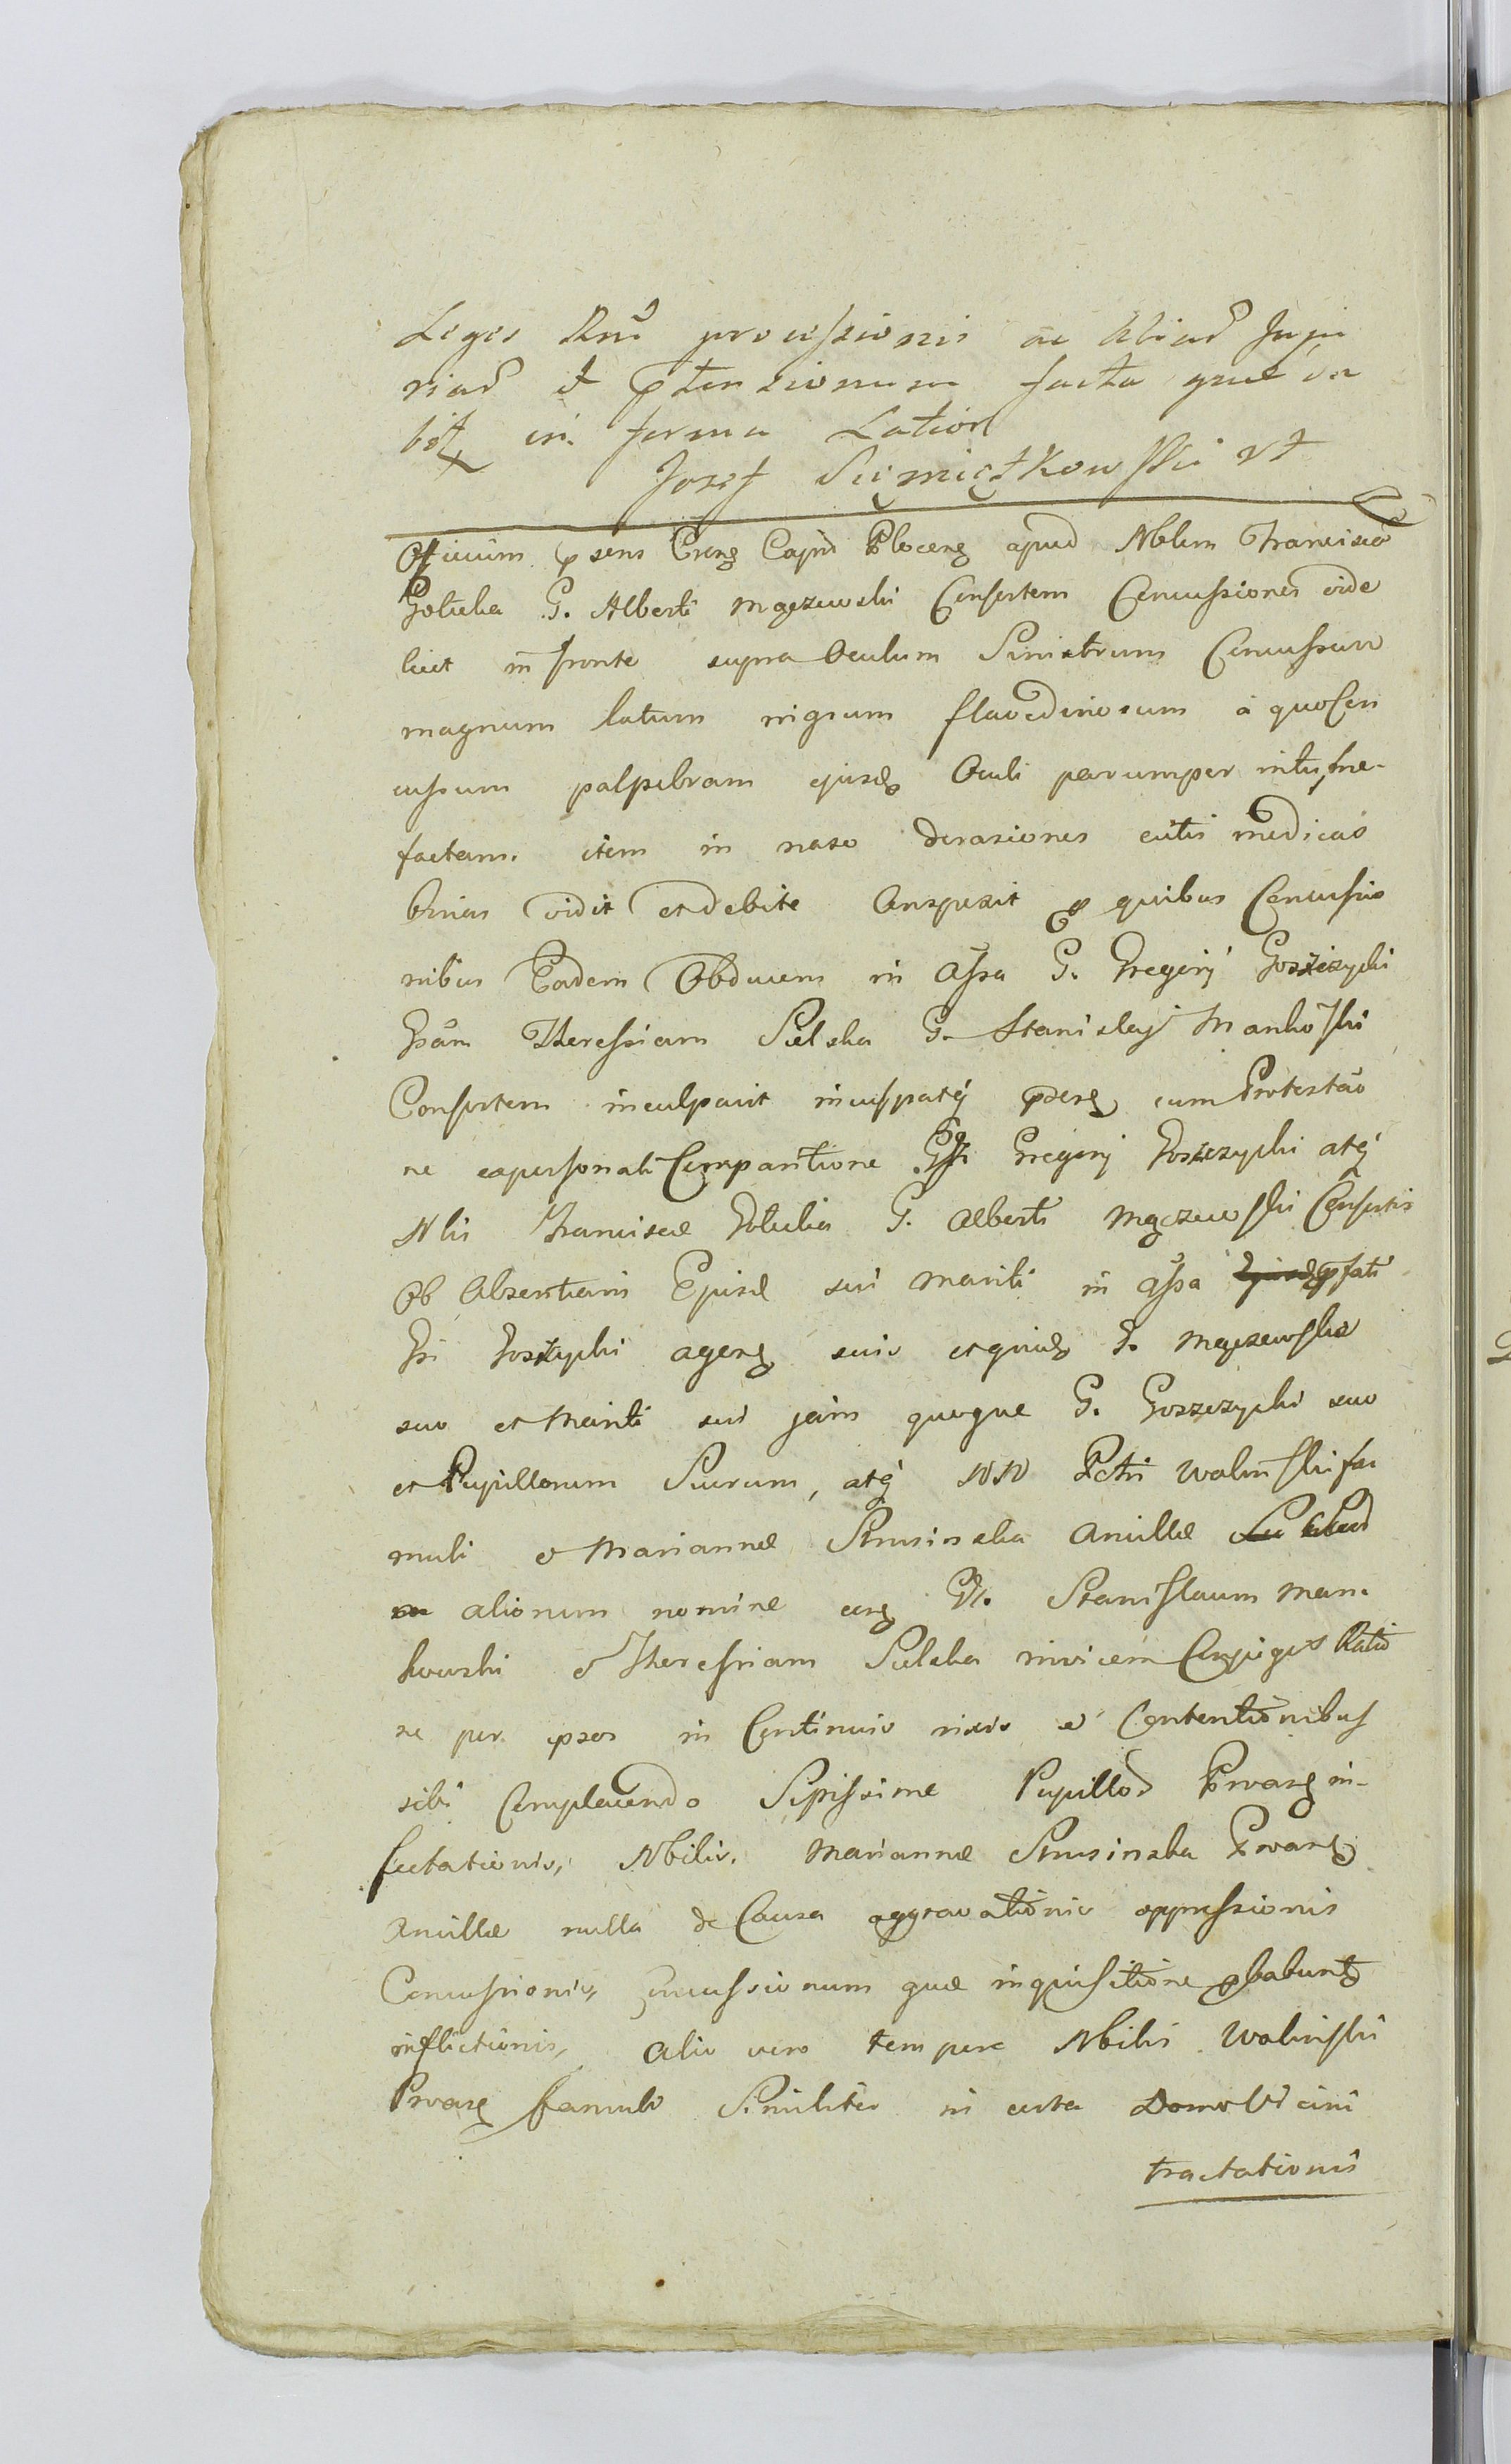 Leges Rni processionis ac Aliad Inju
riad et ptensionum facta quæ da
bit in forma Latiori
Josef Siemiątkowski
Officium psens Crense Capnd Plocense apud Nblem Francisca
Gołuchą G. Alberti Mączewski Consortem Concussiones vide
licet in fronte supra Oculum Sinistrum Concussum
magnum latum nigrum flavedinosum a quo Con
cussum palpebram ejusd Oculi parumper intusme-
factam. item in naso derasiones cutis modicas
binas vidit et debite Conspexit pro quibus Concussio
nibus Eadem Obducens in Assa G. Gregorij Goszczycki
Gsam Theressiam Sulska G. Stanislaj Mankowski
Consortem inculpavit inculpatq cum Protestao
ne ex personali Comparitione Gsi Gregorij Goszczycki atq
Nlis Franciscæ Goluchą G. Alberti Mączewski Consortis
Ob Absentiam Ejusd sui mariti in assa pfati
Gsi Goszczycki agens suis et quid G. Mączewska
suo et Mariti sui jam quoque G. Goszczycki suo
et Pupillorum Suorum, atq NN Petri Wolinski fa
muli et Mariannæ Strusinska Ancillæ
aliorum nomine cong Gs. Stanislaum Man-
kowski et Theressiam Sulska invicem Conjuges Ratio
ne per ipsos in Continuis rixis et Contentionibus
sibi Complacendo Sæpissime Pupillos Prvans in-
sectationis, Nbilis. Mariannæ Strusinska Prvans
Ancillæ nulla de Causa aggravationis oppressionis
Concussionis, Concussionum quæ inquisitione pbabuntr
inflictionis, alio vero tempore Nbilis Wolinski
Prvans famulo Similiter in certa Domo Vicini
tractationis